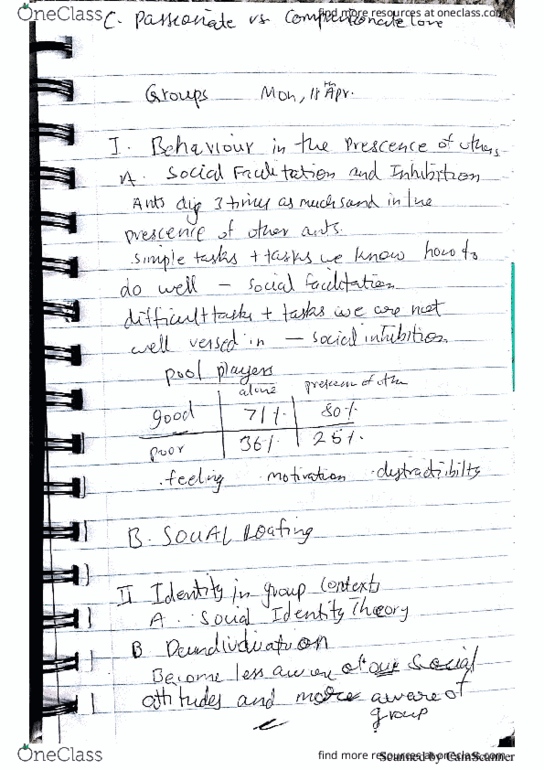 OneClass
find more resources at oneclass.com
C. Passionate vs Companionate love
Groups Mon, 18th Apr.
I. Behaviour in the Prescence of others
A. Social Facilitation and Inhibition
Ants dig 3 times as much sand in the
prescence of other ants.
simple tasks + tasks we know how to
do well — social facilitation
difficult tasks + tasks we are not
well versed in — social inhibition
pool players
alone prescence of other
good 71% 80%
poor 36% 25%
.feeling .motivation .distractibilty
B. Social Loafing
II Identity in group contexts
A. Social Identity Theory
B Deindividuation
Become less aware of our social
attitudes and more aware of
group
OneClass
find more resources at oneclass.com
Scanned by CamScanner